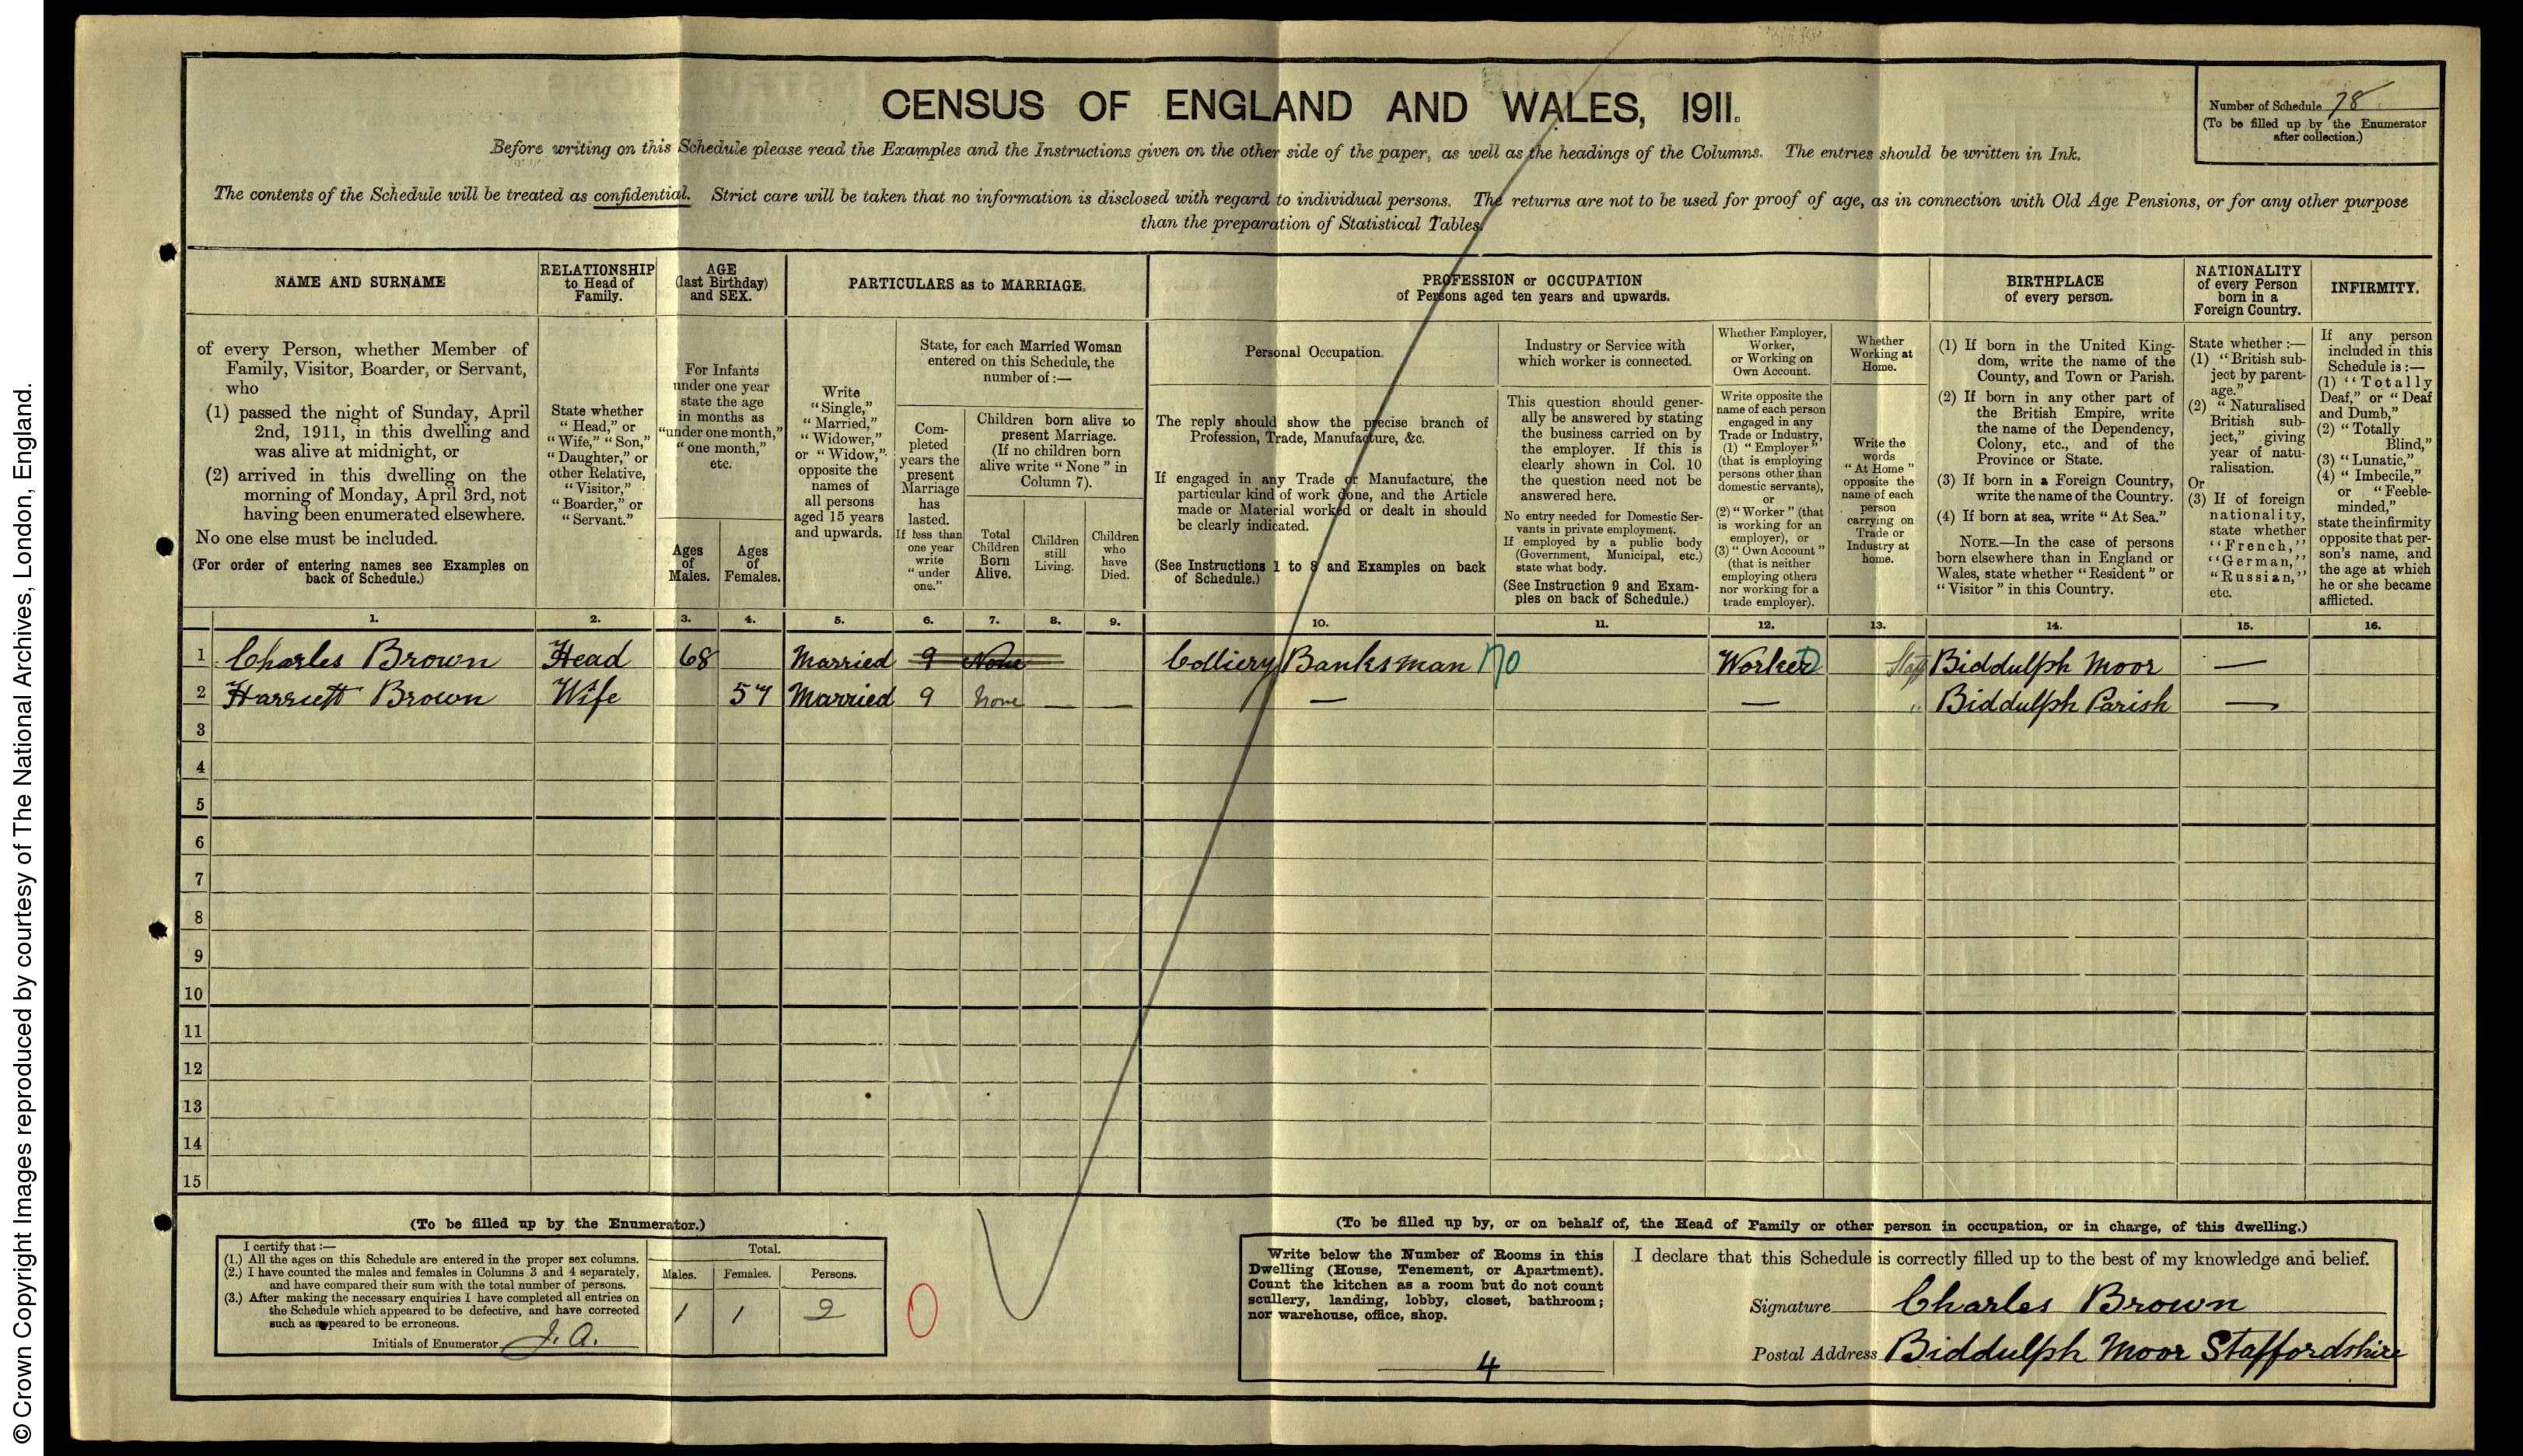 © Crown Copyright Images reproduced by courtesy of The National Archives, London, England.
CENSUS OF ENGLAND AND WALES, 1911.
Number of Schedule 78
(To be filled up by the Enumerator
after collection.)
Before writing on this Schedule please read the Examples and the Instructions given on the other side of the paper, as well as the headings of the Columns. The entries should be written in Ink.
The contents of the Schedule will be treated as confidential. Strict care will be taken that no information is disclosed with regard to individual persons. The returns are not to be used for proof of age, as in connection with Old Age Pensions, or for any other purpose
than the preparation of Statistical Tables.
NAME AND SURNAME
of every Person, whether Member of
Family, Visitor, Boarder, or Servant,
who
(1) passed the night of Sunday, April
2nd, 1911, in this dwelling and
was alive at midnight, or
(2) arrived in this dwelling on the
morning of Monday, April 3rd, not
having been enumerated elsewhere.
No one else must be included.
(For order of entering names see Examples on
back of Schedule.)
RELATIONSHIP
to Head of
Family.
State whether
"Head," or
"Wife," "Son,"
"Daughter," or
other Relative,
"Visitor,"
"Boarder," or
"Servant."
AGE
(last Birthday)
and SEX.
For Infants
under one year
state the age
in months as
"under one month,"
"one month,"
etc.
Ages
of
Males.
Ages
of
Females.
PARTICULARS as to MARRIAGE.
Write
"Single,"
"Married,"
"Widower,"
or "Widow,"
opposite the
names of
all persons
aged 15 years
and upwards.
State, for each Married Woman
entered on this Schedule, the
number of :—
Com-
pleted
years the
present
Marriage
has
lasted.
If less than
one year
write
"under
one."
Children born alive to
present Marriage.
(If no children born
alive write "None" in
Column 7).
Total
Children
Born
Alive.
Children
still
Living.
Children
who
have
Died.
PROFESSION or OCCUPATION
of Persons aged ten years and upwards.
Personal Occupation.
The reply should show the precise branch of
Profession, Trade, Manufacture, &c.
If engaged in any Trade or Manufacture, the
particular kind of work done, and the Article
made or Material worked or dealt in should
be clearly indicated.
(See Instructions 1 to 8 and Examples on back
of Schedule.)
Industry or Service with
which worker is connected.
This question should gener-
ally be answered by stating
the business carried on by
the employer. If this is
clearly shown in Col. 10
the question need not be
answered here.
No entry needed for Domestic Ser-
vants in private employment.
If employed by a public body
(Government, Municipal, etc.)
state what body.
(See Instruction 9 and Exam-
ples on back of Schedule.)
Whether Employer,
Worker,
or Working on
Own Account.
Write opposite the
name of each person
engaged in any
Trade or Industry,
(1) "Employer"
(that is employing
persons other than
domestic servants),
or
(2) "Worker" (that
is working for an
employer), or
(3) "Own Account"
(that is neither
employing others
nor working for a
trade employer).
Whether
Working at
Home.
Write the
words
"At Home"
opposite the
name of each
person
carrying on
Trade or
Industry at
home.
BIRTHPLACE
of every person.
(1) If born in the United King-
dom, write the name of the
County, and Town or Parish.
(2) If born in any other part of
the British Empire, write
the name of the Dependency,
Colony, etc., and of the
Province or State.
(3) If born in a Foreign Country,
write the name of the Country.
(4) If born at sea, write "At Sea."
NOTE.—In the case of persons
born elsewhere than in England or
Wales, state whether "Resident" or
"Visitor" in this Country.
NATIONALITY
of every Person
born in a
Foreign Country.
State whether :—
(1) "British sub-
ject by parent-
age."
(2) "Naturalised
British sub-
ject," giving
year of natu-
ralisation.
Or
(3) If of foreign
nationality,
state whether
"French,"
"German,"
"Russian,"
etc.
INFIRMITY.
If any person
included in this
Schedule is :—
(1) "Totally
Deaf," or "Deaf
and Dumb,"
(2) "Totally
Blind,"
(3) "Lunatic,"
(4) "Imbecile,"
or "Feeble-
minded,"
state the infirmity
opposite that per-
son's name, and
the age at which
he or she became
afflicted.
1. 2. 3. 4. 5. 6. 7. 8. 9. 10. 11. 12. 13. 14. 15. 16.
1 Charles Brown Head 68 Married 9 None Colliery Banksman 170 Worker Staff Biddulph Moor —
2 Harriett Brown Wife 57 Married 9 None — — — — " Biddulph Parish —
3
4
5
6
7
8
9
10
11
12
13
14
15
(To be filled up by the Enumerator.)
I certify that :—
(1.) All the ages on this Schedule are entered in the proper sex columns.
(2.) I have counted the males and females in Columns 3 and 4 separately,
and have compared their sum with the total number of persons.
(3.) After making the necessary enquiries I have completed all entries on
the Schedule which appeared to be defective, and have corrected
such as appeared to be erroneous.
Initials of Enumerator J. A.
Total.
Males. Females. Persons.
1 1 2
0
(To be filled up by, or on behalf of, the Head of Family or other person in occupation, or in charge, of this dwelling.)
Write below the Number of Rooms in this
Dwelling (House, Tenement, or Apartment).
Count the kitchen as a room but do not count
scullery, landing, lobby, closet, bathroom;
nor warehouse, office, shop.
4
I declare that this Schedule is correctly filled up to the best of my knowledge and belief.
Signature Charles Brown
Postal Address Biddulph Moor Staffordshire